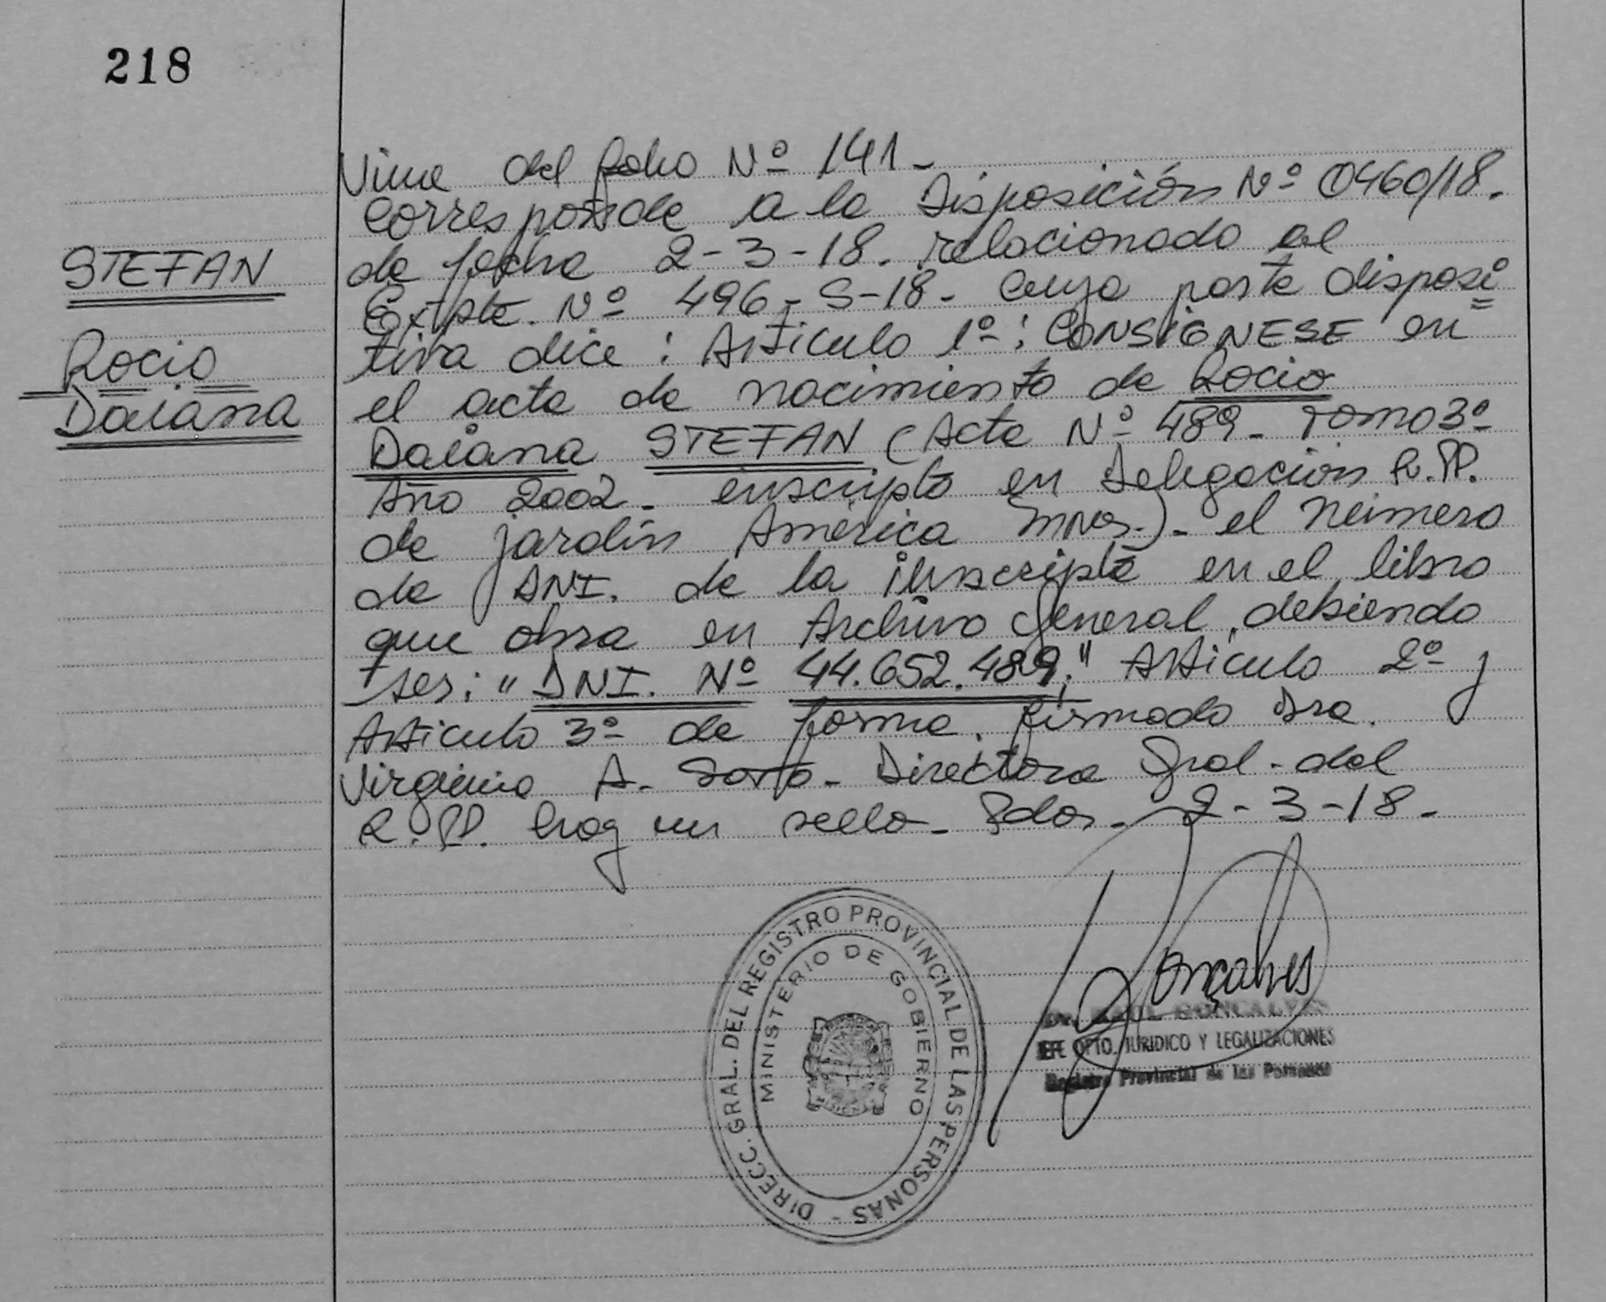 218
STEFAN
Rocio
Daiana
Viene del folio Nº 141-
Corresponde a la Disposición Nº 0460/18.
de fecha 2-3-18. relacionado al
Expte. Nº 496-S-18- cuya parte disposi
tiva dice: Articulo 1º: CONSIGNESE en
el acta de nacimiento de Rocio
Daiana STEFAN (Acta Nº 489- Tomo 3º
Año 2002- inscripta en Delegación R.PP.
de jardín América Mnes.)- el Número
de DNI. de la inscripta en el libro
que obra en Archivo General, debiendo
ser: "DNI. Nº 44.652.489." Articulo 2º y
Articulo 3º de forma. firmado Dra.
Virginia A. Directora Gral. del
R.PP. hay un sello- Pdas. 2-3-18-
DIRECC. GRAL. DEL REGISTRO PROVINCIAL DE LAS PERSONAS -
MINISTERIO DE GOBIERNO
Gonçalves
Dr. RAUL GONCALVES
JEFE DPTO. JURIDICO Y LEGALIZACIONES
Registro Provincial de las Personas